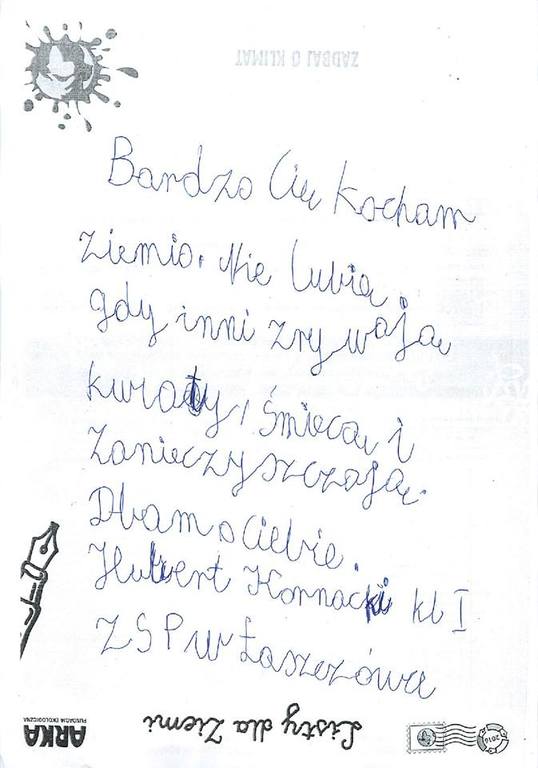 ZADBAJ O KLIMAT
Bardzo Cię kocham
Ziemio. Nie lubię
gdy inni zrywają
kwiaty, śmiecą i
zanieczyszczają.
Dbam o Ciebie.
Hubert Kornacki kl I
ZSP w Łaszczówce
Listy dla Ziemi
ARKA
FUNDACJA EKOLOGICZNA
2016